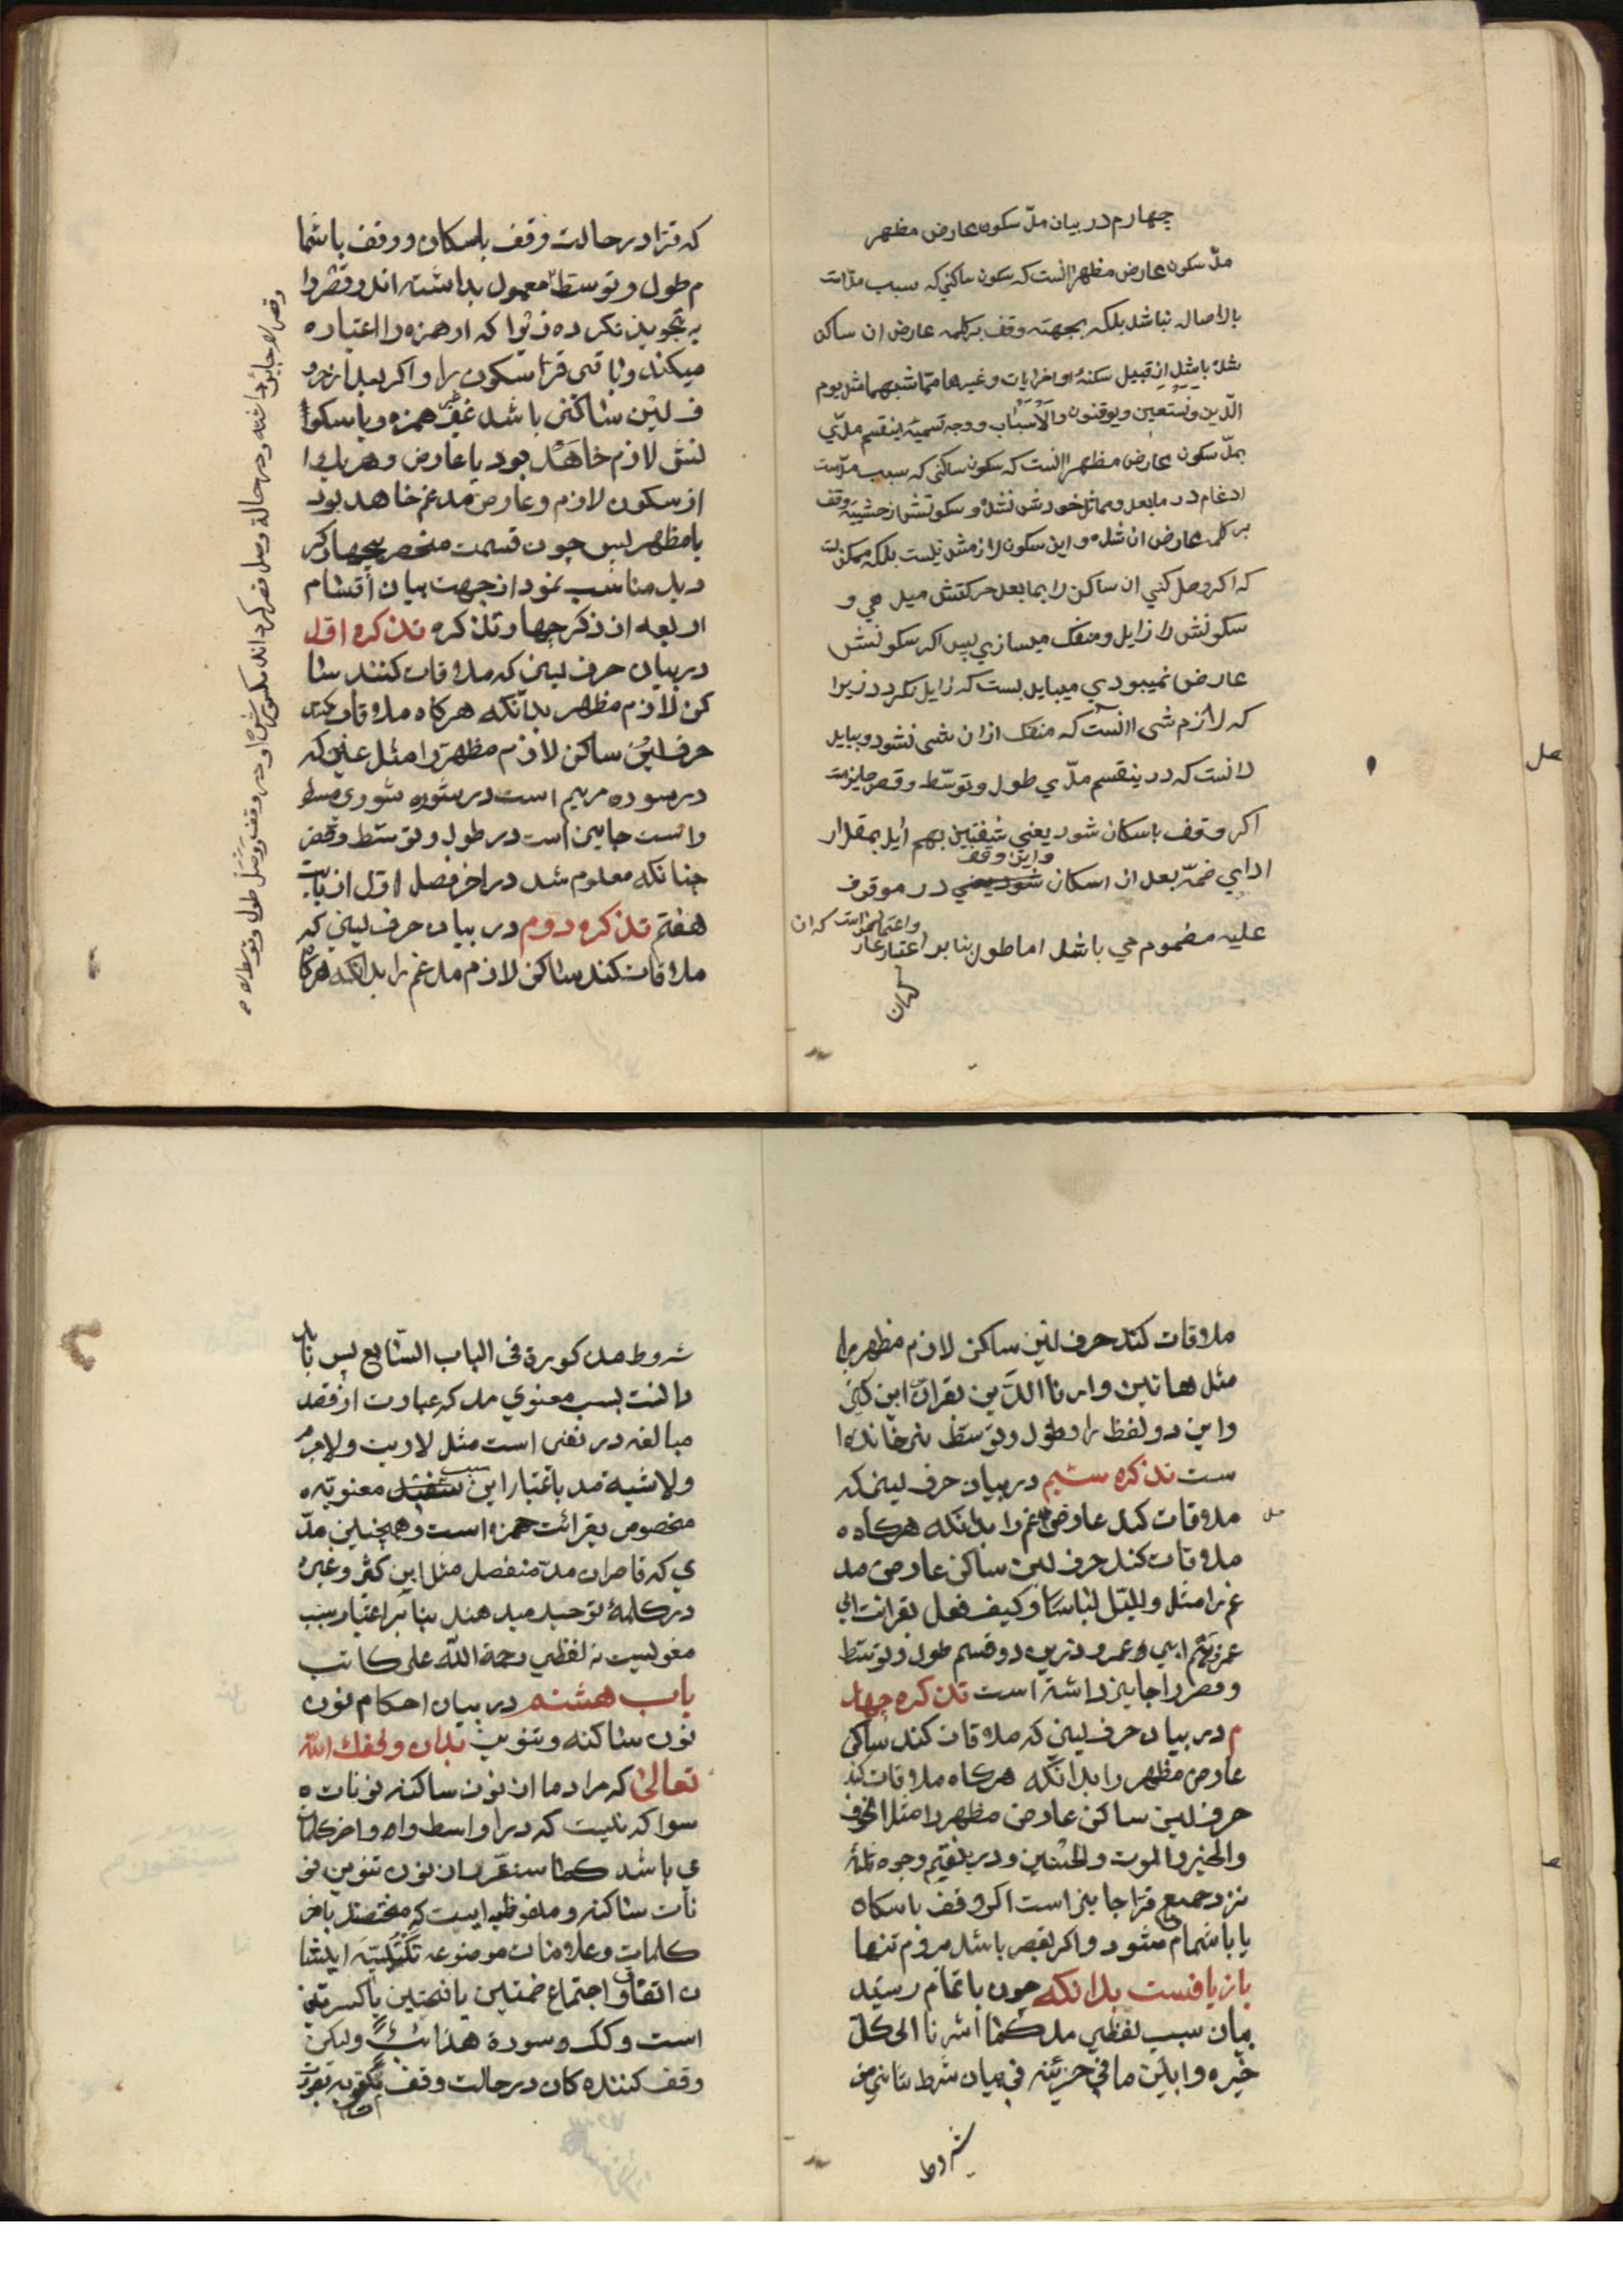 چهارم در بیان مدّ سکون عارض مظهر
مدّ سکون عارض مظهر انست که سکون ساکنی که سبب مدّ است
بالاصاله نباشد بلکه بجهته وقف بر کلمه عارض ان ساکن
شده باشد از قبیل سکنهٔ اواخر ایات و غیرها ممّا شبهها مثل یوم
الدّین و نستعین و یوقنون والاسباب و وجه تسمیهٔ اینقسم مدّی
بمدّ سکون عارض مظهر انست که سکون ساکنی که سبب مدّ است
ادغام در مابعد و مماثل خودش نشده و سکونش از حشیتهٔ وقف
بر کلمه عارض ان شده و این سکون لازمش نیست بلکه ممکن است
که اکر وصل کنی ان ساکن را بما بعد حرکتش میدهی و
سکونش را زایل و منفک میسازی پس اکر سکونش
عارض نمیبودی میبایدبست که زایل نکردد زیرا
که لازم شی انست که منفک ازان شی نشود و بباید
دانست که در ینقسم مدّی طول و توسّط و قصر جایز است
اکر وقف باسکان شود یعنی شفتین بهم اید بمقدار
واین وقف
ادای ضمّه بعد از اسکان شود یعنی در موقوف
علیه مضموم می باشد اما طول بنا بر اعتبار
که ان
که قرّا در حالت وقف باسکان و وقف باشما
م طول و توسّط معمول بداشته اند و قصر را
به تجویذ نکرده زیرا که اد همزه را اعتبار ه
میکند و باقی قرّا سکون را و اکر بعد از حرو
ف لین ساکنی باشد غیر همزه و یا سکو
نش لازم خاهد بود یا عارض و هر یک ا
از سکون لازم و عارض مدغم خاهد بود
یا مظهر پس چون قسمت منحصر بچهار کر
دید مناسب نمود از جهت بیان أقسام
اربعه از ذکر چهار تذکره تذکره اوّل
در بیان حرف لینی که ملاقات کنند سا
کن لازم مظهر بدانکه هرکاه ملاقات کند
حرف لین ساکن لازم مظهر را مثل عین که
در سوره مریم است در ستوره شوری مسط
و است جایز است در طول و توسّط و قصر
چنانکه معلوم شد در اخر فصل اوّل از باب
هفتم تذکره دوّم در بیان حرف لینی که
ملاقات کند ساکن لازم مدغم را بدانکه هرکا
ملاقات کند حرف لین ساکن لازم مظهر را
مثل هاتین و ارنا الذین بقران ابن کثیر
و این دو لفظ را دطول و توسّط نیز خانده ا
ست تذکره سیّم در بیان حرف لینی که
ملاقات کند عارض مدغم را بدانکه هرکاه ه
ملاقات کند حرف لین ساکن عارض مد
غم را مثل واللیل لباسا و کیف فعل بقرائت ابی
عمرو ابی عمرو درین دو قسم طول و توسّط
و قصر را جایز داشته است تذکره چهار
م در بیان حرف لینی که ملاقات کند ساکن
عارض مظهر را بدانکه هرکاه ملاقات کند
حرف لین ساکن عارض مظهر را مثل الخوف
والخیر والموت والحسنیین و درینقسم وجوه ثلثه
نزد جمیع قرّا جایز است اکر وقف باسکان
یا باشمام شود و اکر بقصر باشد مروم تنها
باز یافست بدانکه چون باتمام رسید
بیان سبب لفظی مد کما اشرنا الی کلّ
خیره وابلین مافی حزئیه فی بیان شرط بتانی من
شروط
شروط مذکورة فی الباب السّابع پس باید
دانست بسبب معنوی مد که عبارت از قصد
مبالغه در نفی است مثل لاریب و لاجرم
سبب
ولاشیة مد باعتبار این معنویّه ه
مخصوص بقرائت حمزه است و همچنین مدّ
ی که قاصران مدّ منفصل مثل ابن کثیر و غیره
در کلمهٔ توحید میدهند بنا بر اعتبار سبب
معنویست نه لفظی رحمة الله علی کاتب
باب هشتم در بیان احکام نون
نون ساکنه و تنوین بدان وفقك الله
تعالیٰ که مراد ما از نون ساکنه نونات ه
سواکه نیست که در اواسط واه واخر کلمات
می باشد کما ستعرّ ان نون تنوین نو
نات ساکنه و ملفوظیه ایست که مختصند باخر
کلمات و علامات موضوعه ایشا
ن اتفاق اجتماع ضمتین یا فتحتین یا کسرتین
است وکک وسورة هذا ولیکن
وقف کننده کان در حالت وقف